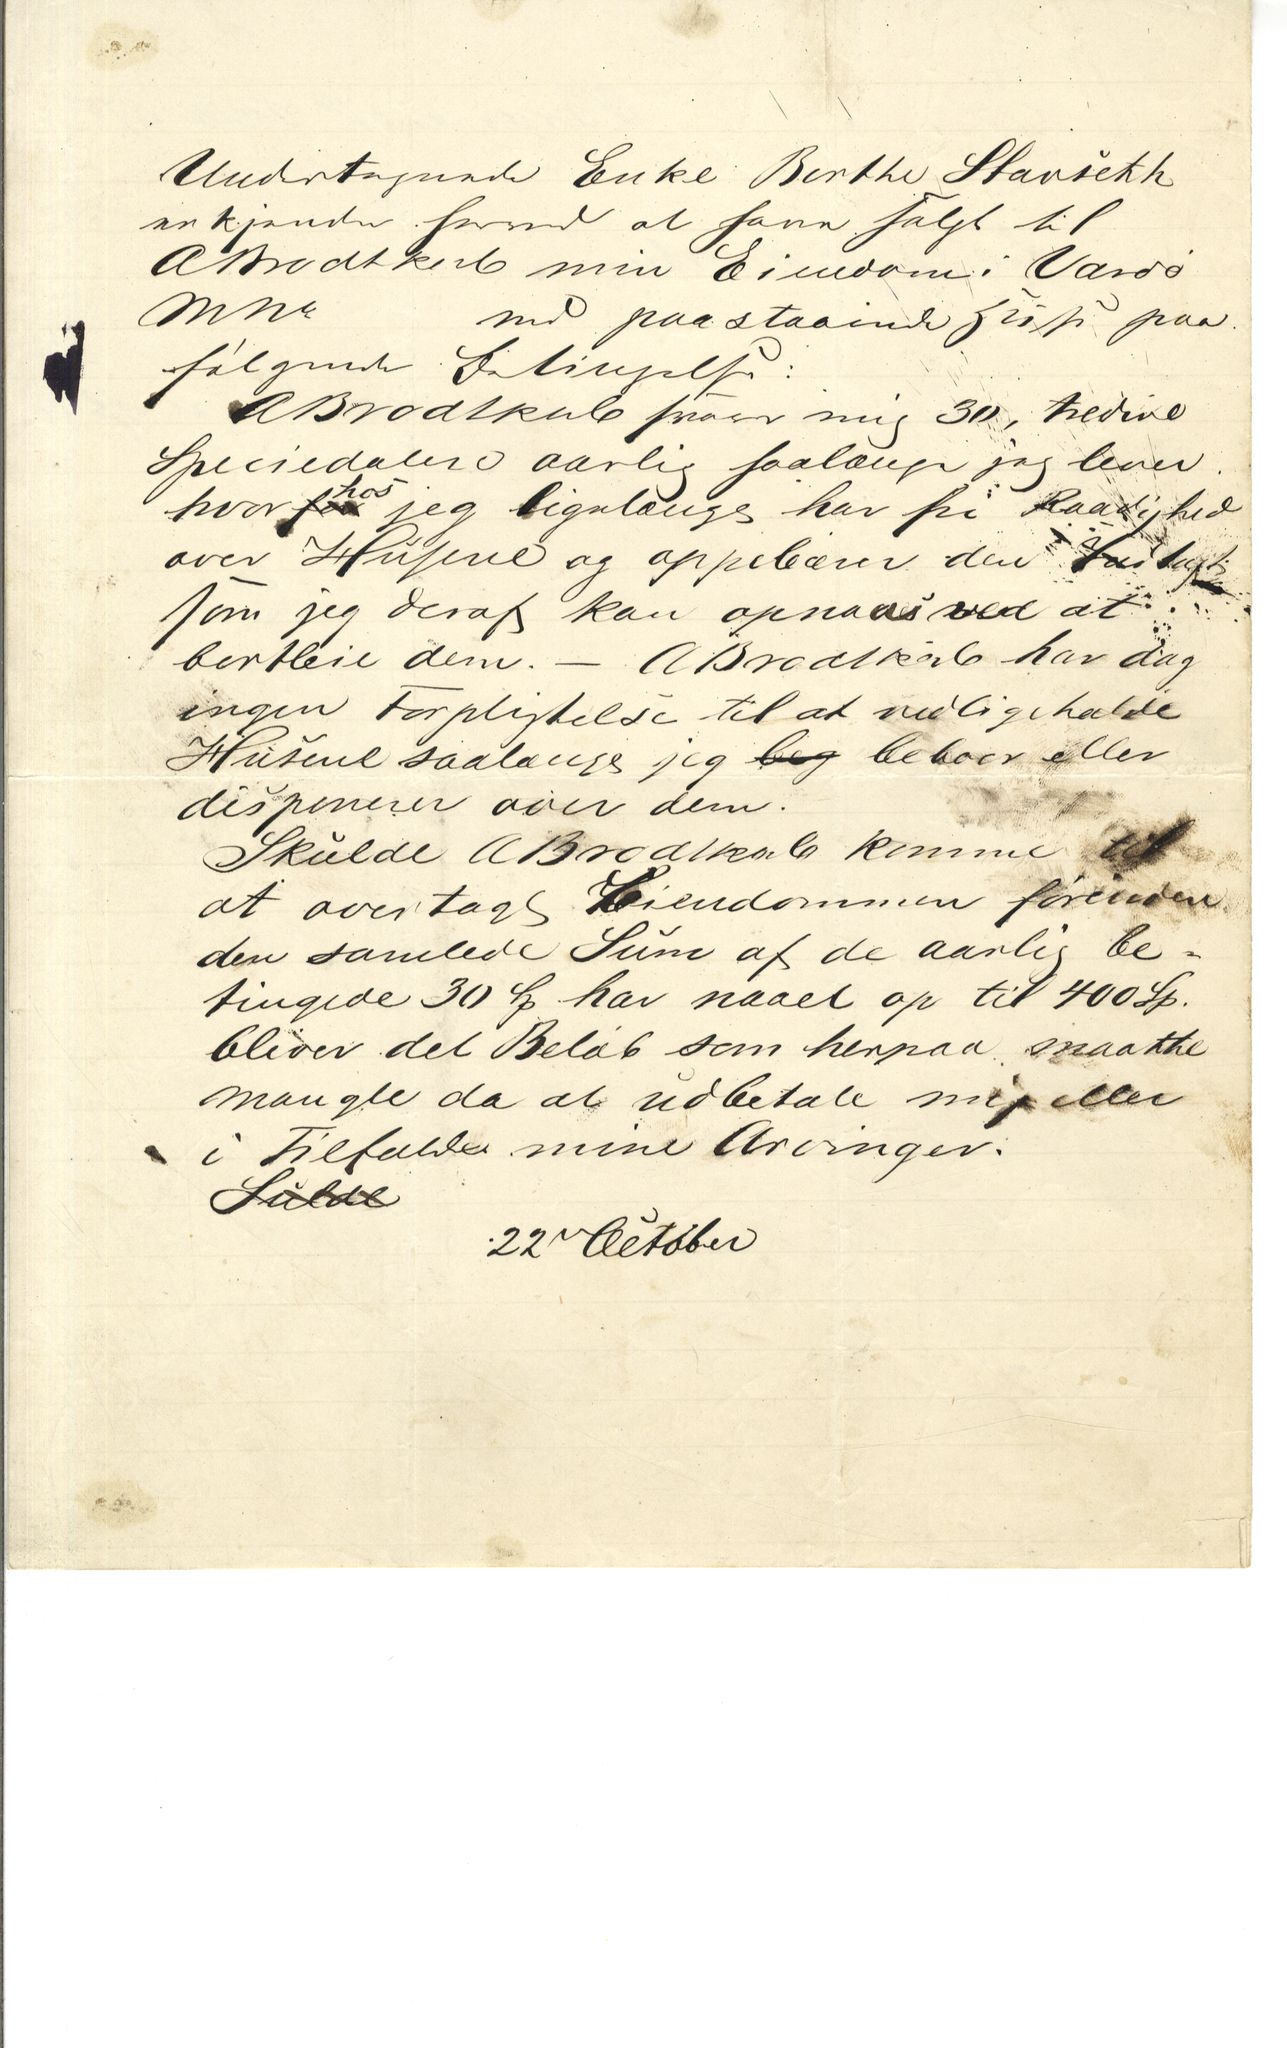 Undertegnede Enke Berthe Starseth
erkjender herved at have solgt til
A Brodtkorb min Eiendom i Vardö
M No med paastaaende Huse paa
fölgende Betingelse:
A Brodtkorb svarer mig 30, tredive
Speciedalere aarlig saalænge jeg lever
hvorhos jeg ligelænge har fri Raadighed
over Husene og oppebærer den Indtægt
som jeg deraf kan opnaaes ved at
bortleie dem. — A Brodtkorb har dog
ingen Forpligtelse til at vedligeholde
Husene saalænge jeg beg beboer eller
disponerer over dem.
Skulde A Brodtkorb komme til
at overtage Eiendommen förinden
den samlede Sum af de aarlig be-
tingede 30 Sp har naaet op til 400 Sp.
bliver det Belöb som herpaa maatte
mangle da at udbetale mig eller
i Tilfælde mine Arvinger.
Sulde
22 October